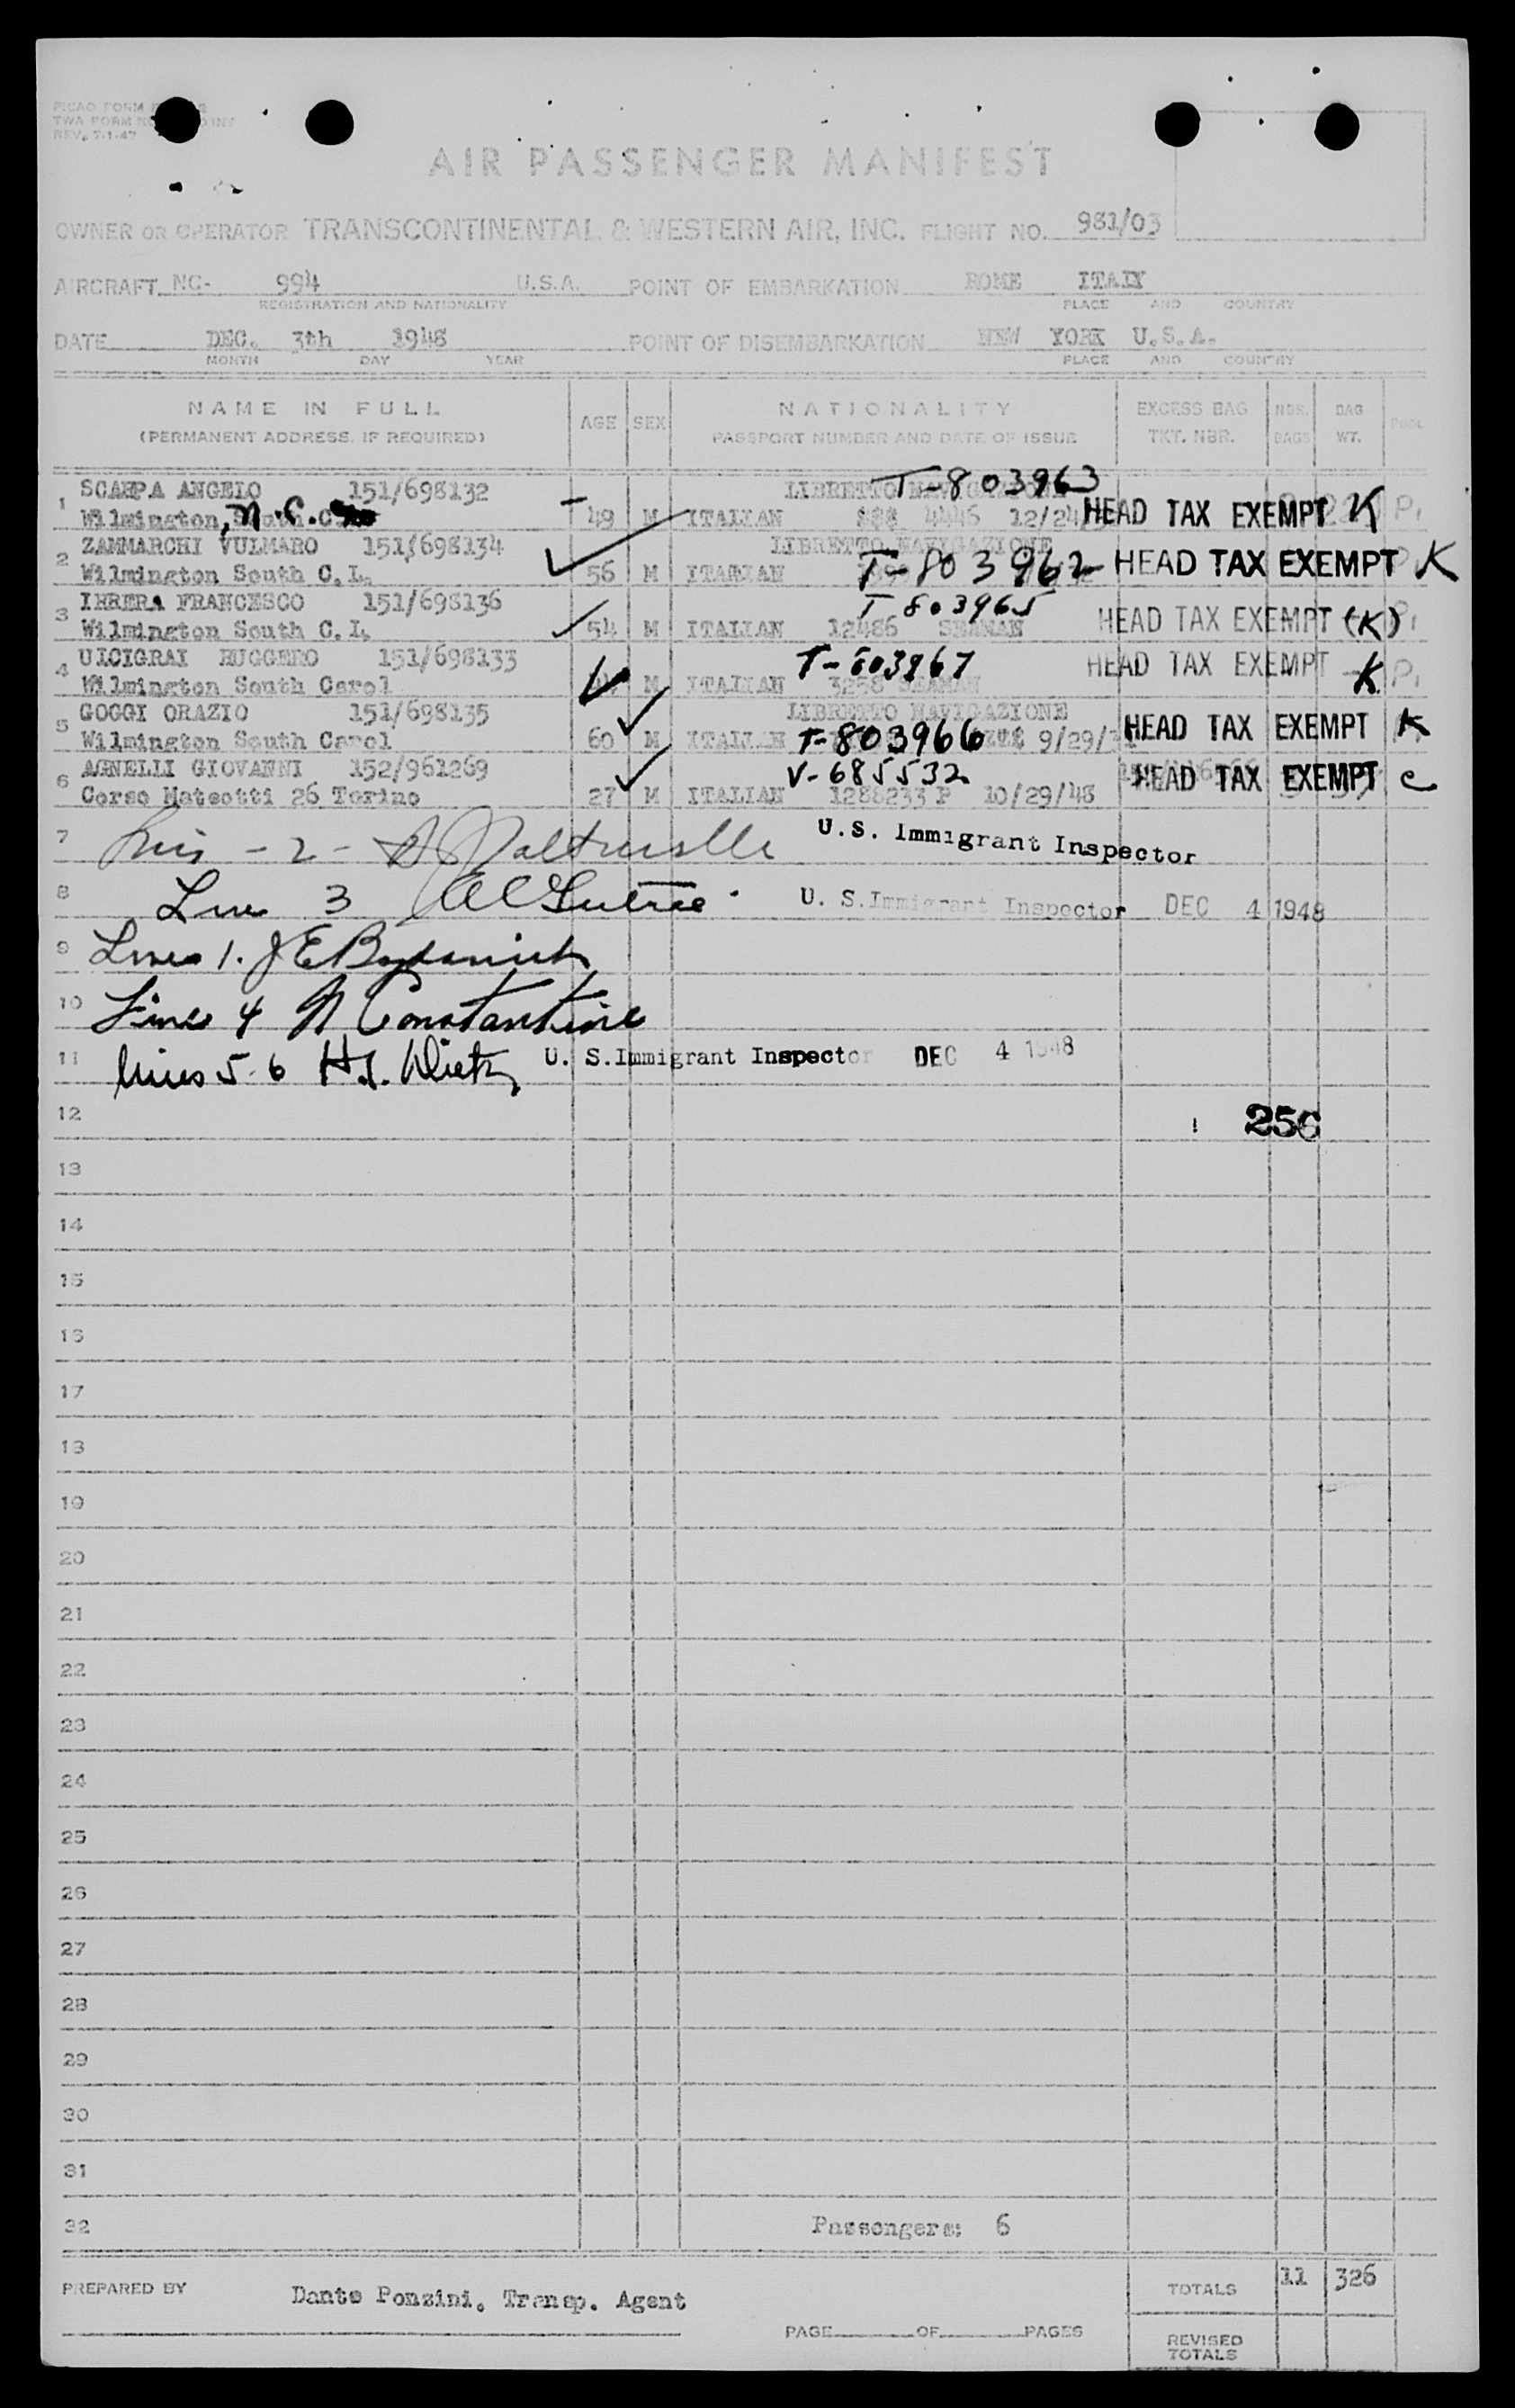 TWA FORM
REV. 7-1-47
AIR PASSENGER MANIFEST
OWNER OR OPERATOR TRANSCONTINENTAL & WESTERN AIR, INC. FLIGHT NO. 981/03
AIRCRAFT NC- 994 U.S.A. POINT OF EMBARKATION ROME ITALY
REGISTRATION AND NATIONALITY PLACE AND COUNTRY
DATE DEC. 3th 1948 POINT OF DISEMBARKATION NEW YORK U.S.A.
MONTH DAY YEAR PLACE AND COUNTRY
NAME IN FULL AGE SEX NATIONALITY EXCESS BAG NBR. BAG
(PERMANENT ADDRESS, IF REQUIRED) PASSPORT NUMBER AND DATE OF ISSUE TKT. NBR. BAGS WT.
1 SCARPA ANGELO 151/698132 LIBRETTO T-803963
Wilmington, N.C. 49 M ITALIAN 4446 HEAD TAX EXEMPT K P.
2 ZAMMARCHI VULMARO 151/698134 LIBRETTO NAVIGAZIONE
Wilmington South C.I. 56 M ITALIAN T-803962 HEAD TAX EXEMPT K
3 IRRERA FRANCESCO 151/698136 T 803965
Wilmington South C.I. 54 M ITALIAN 12486 SEAMAN HEAD TAX EXEMPT (K)
4 UICIGRAI RUGGERO 151/698133 T-803967 HEAD TAX EXEMPT
Wilmington South Carol M ITALIAN 3258 SEAMAN K P.
5 GOGGI ORAZIO 151/698135 LIBRETTO NAVIGAZIONE
Wilmington South Carol 60 M ITALIAN T-803966 HEAD TAX EXEMPT K
6 AGNELLI GIOVANNI 152/961269 V-685532 HEAD TAX EXEMPT C
Corso Mateotti 26 Torino 27 M ITALIAN 1288233 P 10/29/48
7 - 2 - U.S. Immigrant Inspector
8 Line 3 U. S. Immigrant Inspector DEC 4 1948
9 Lines 1. J E
10 Lines 4 N Constantine
11 lines 5-6 H.J. U. S. Immigrant Inspector DEC 4 1948
12 256
13
14
15
16
17
18
19
20
21
22
23
24
25
26
27
28
29
30
31
32 Passengers: 6
PREPARED BY Dante Ponzini. Transp. Agent TOTALS 11 326
PAGE OF PAGES
REVISED
TOTALS